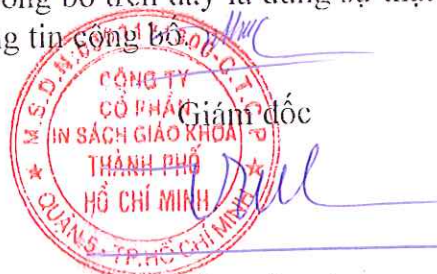 ông bố trên đây là đúng sự thật
ng tin công bố.
Giám đốc
CÔNG TY
CỔ PHẦN
IN SÁCH GIÁO KHOA
THÀNH PHỐ
HỒ CHÍ MINH
QUẬN 5 - TP.HỒ CHÍ MINH
M.S.D.N:
C.T.C.P